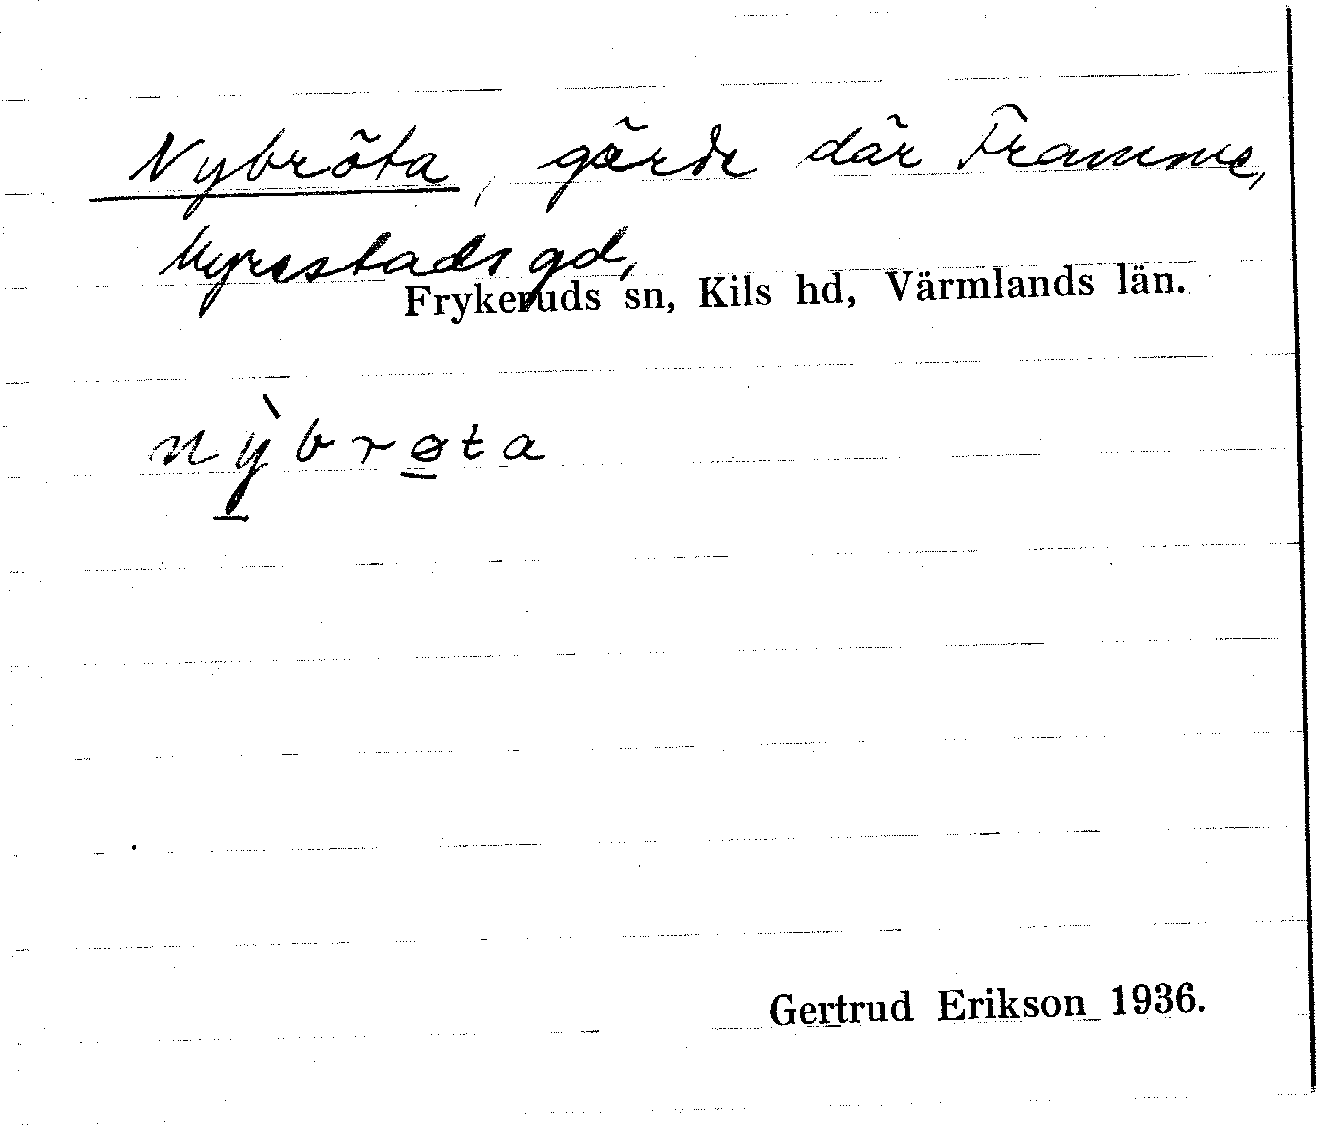 Nybröta, gärde där Framme,
Kyrestads gd,
Frykeruds sn, Kils hd, Värmlands län.
nỳbrøta
Gertrud Erikson 1936.